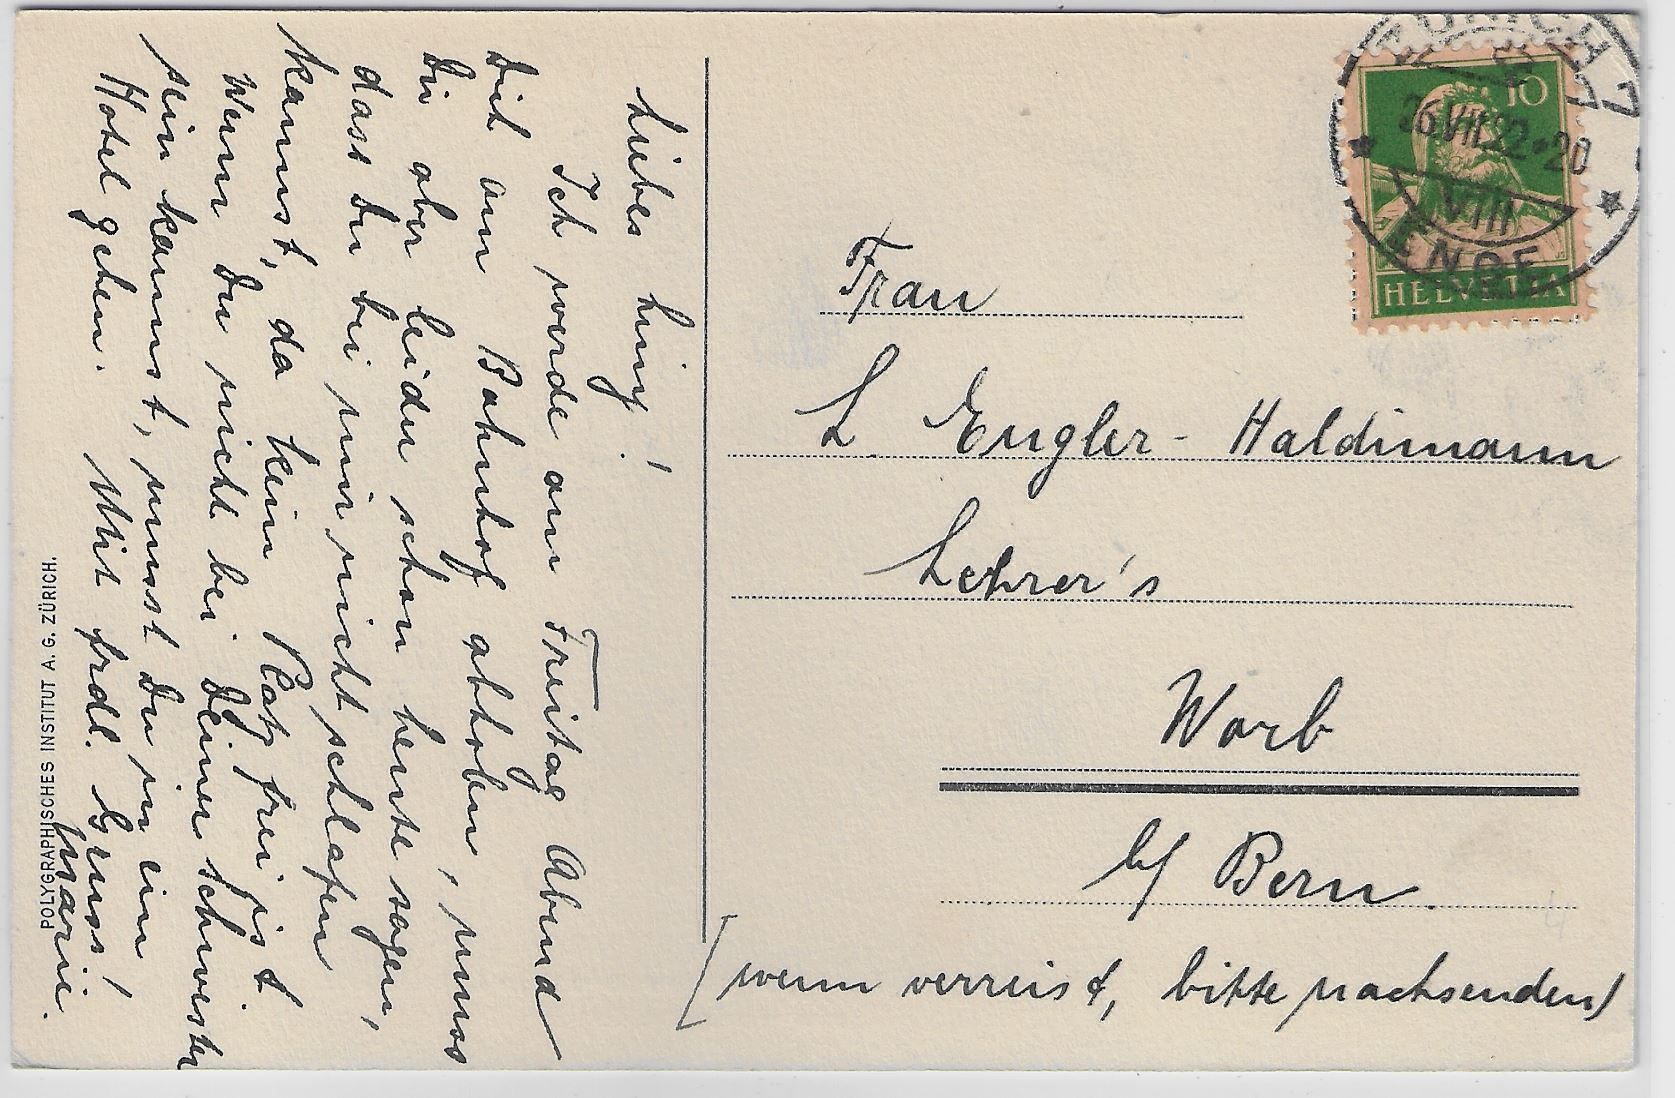 Liebes Liny!
Ich werde am Freitag Abend
Dich am Bahnhof abholen, muss
Dir aber leider schon heute sagen,
dass Du bei mir nicht schlafen
kannst, da kein Platz frei ist
Wenn Du nicht bei Deiner Schwester
sein kannst, musst Du in ein
Hotel gehen. Mit frdl. Gruss!
Marie.
POLYGRAPHISCHES INSTITUT A. G. ZÜRICH.
ZÜRICH 7
26.VII.22·20
VIII
ENGE
10
HELVETIA
Frau
L. Engler-Haldimann
Lehrer's
Worb
b/ Bern.
(wenn verreist, bitte nachsenden)